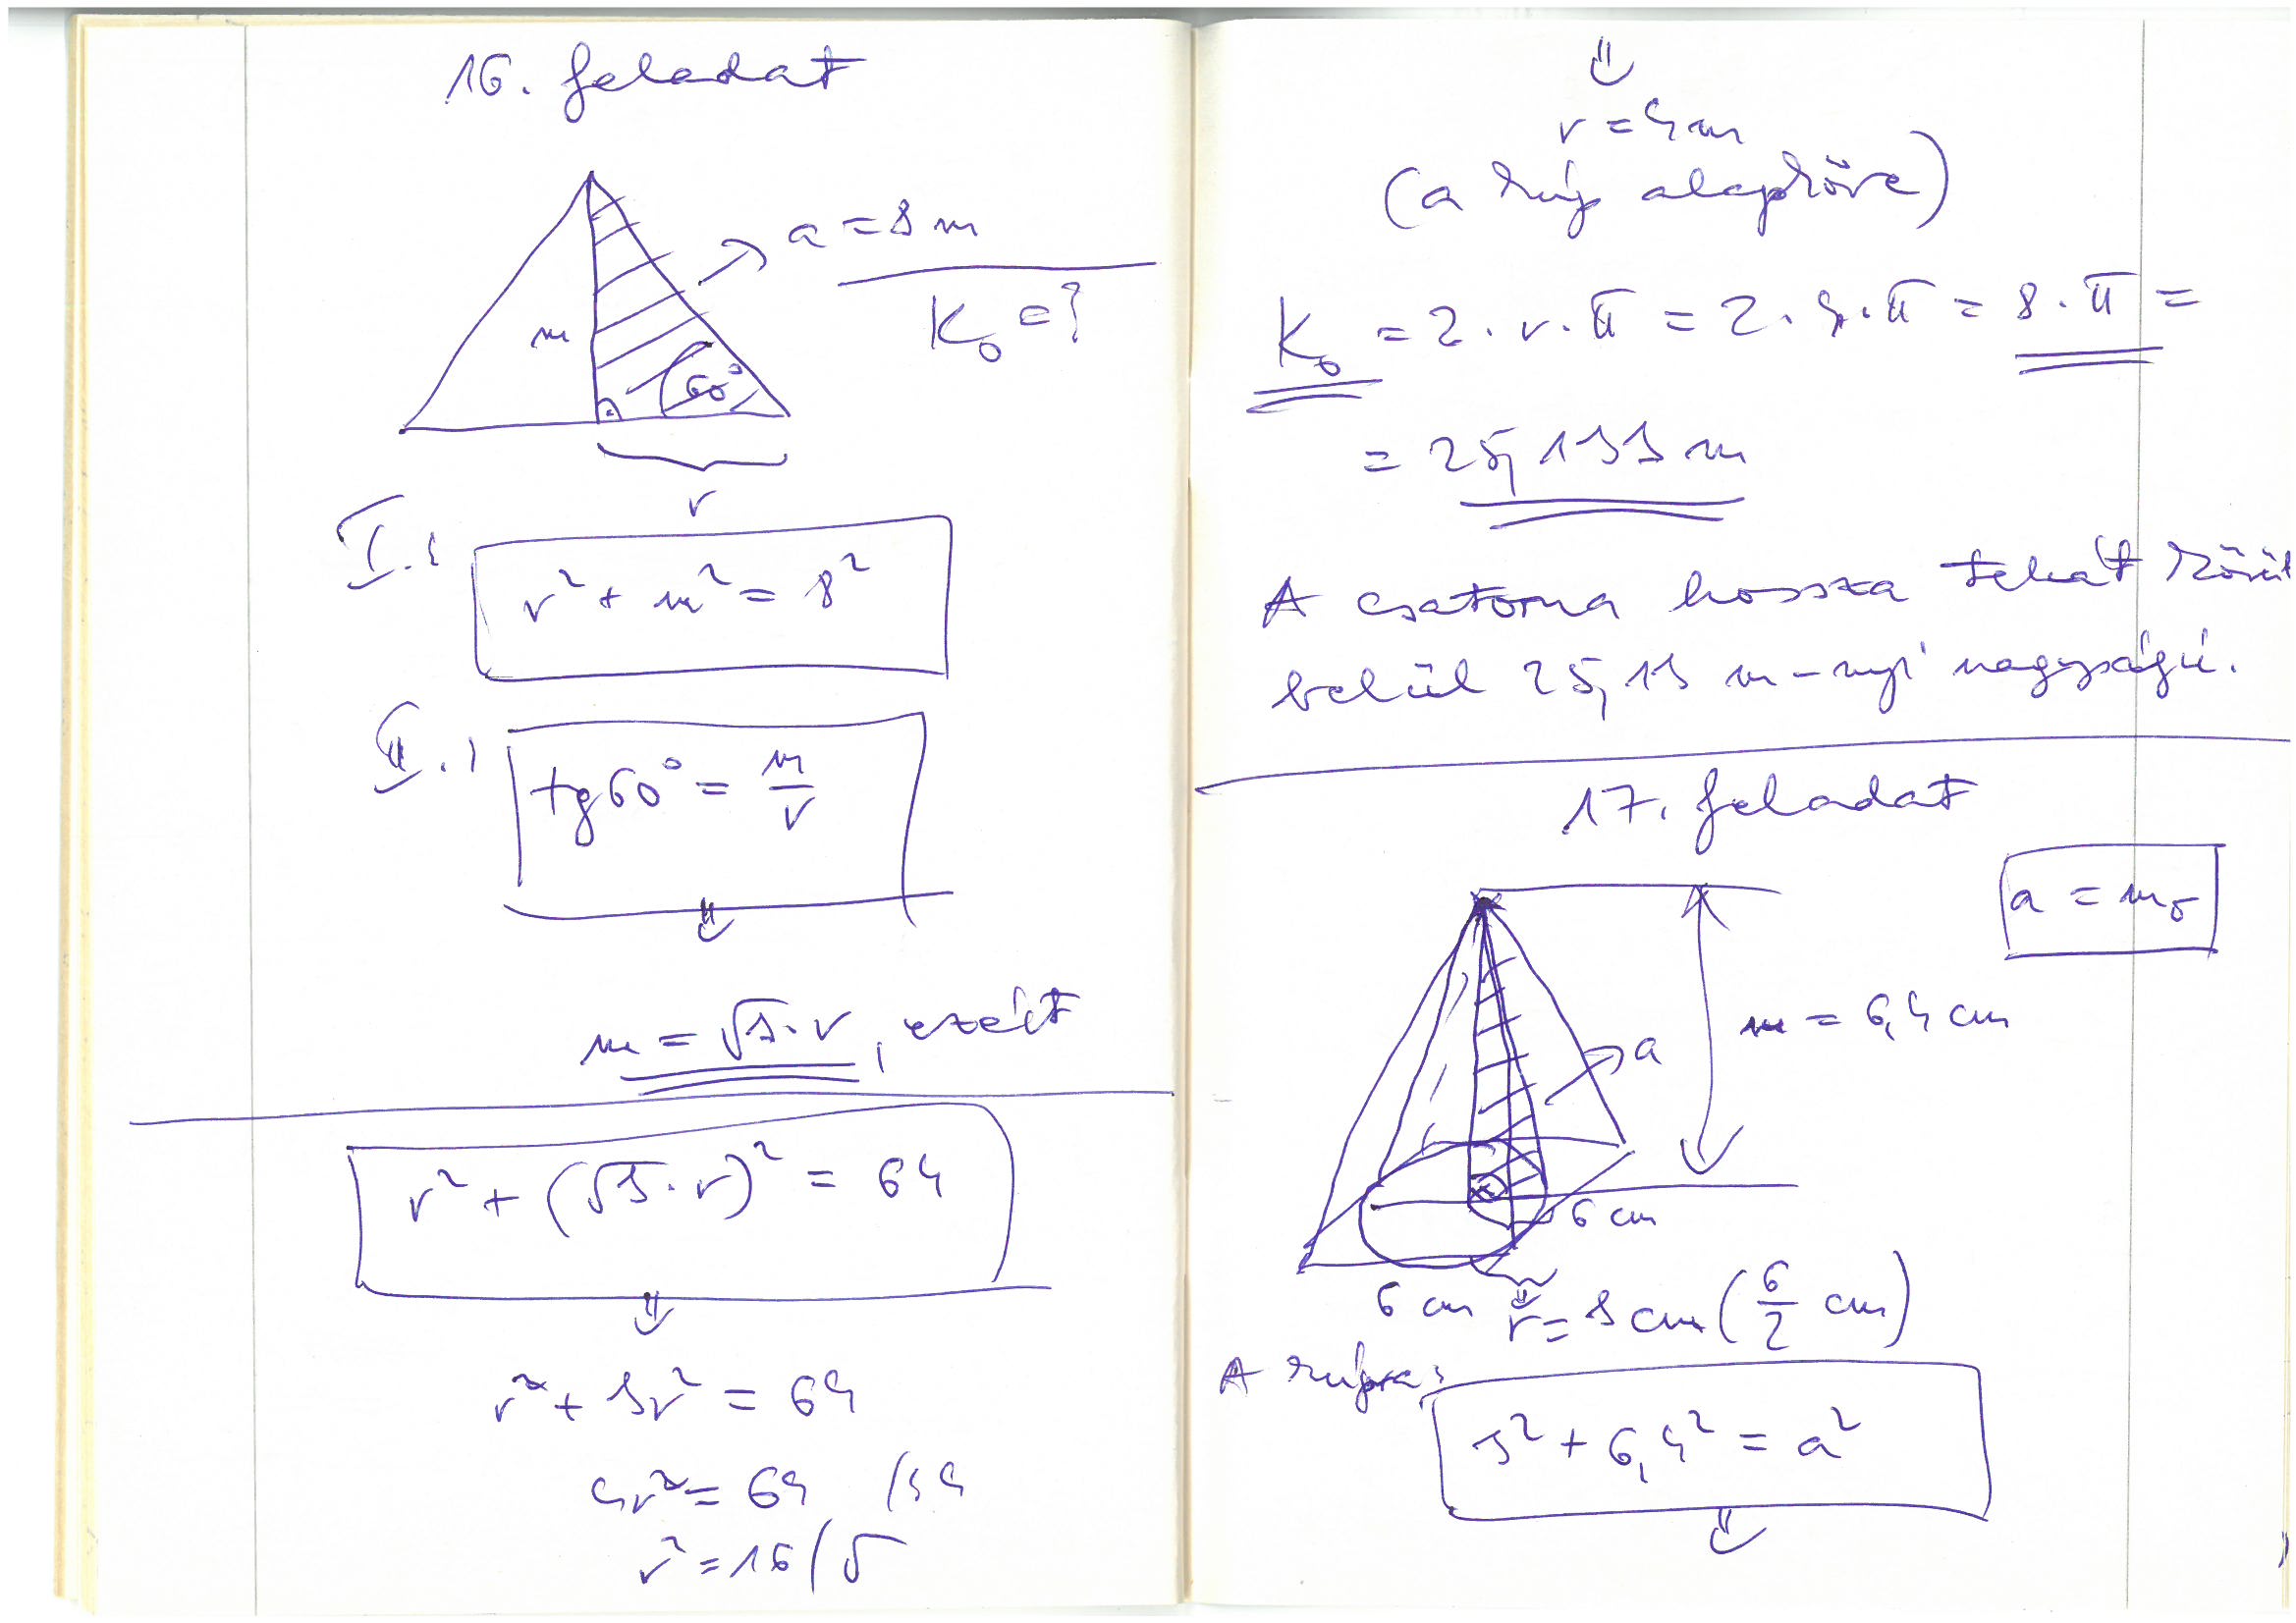 16. feladat
a = 8 m
K₀ = ?
m
60°
r
I.:
r² + m² = 8²
II.:
tg60° = m/r
⇓
m = √3·r, ezért
r² + (√3·r)² = 64
⇓
r² + 3r² = 64
4r² = 64 /:4
r² = 16 /√
⇓
r = 4m
(a kúp alapköre)
K₀ = 2·r·π = 2·4·π = 8·π =
= 25,133 m
A csatorna hossza tehát körül
belül 25,13 m-nyi nagyságú.
17. feladat
a = m₀
m = 6,4 cm
a
6 cm
6 cm
r = 3 cm (6/2 cm)
A kúpra:
3² + 6,4² = a²
⇓